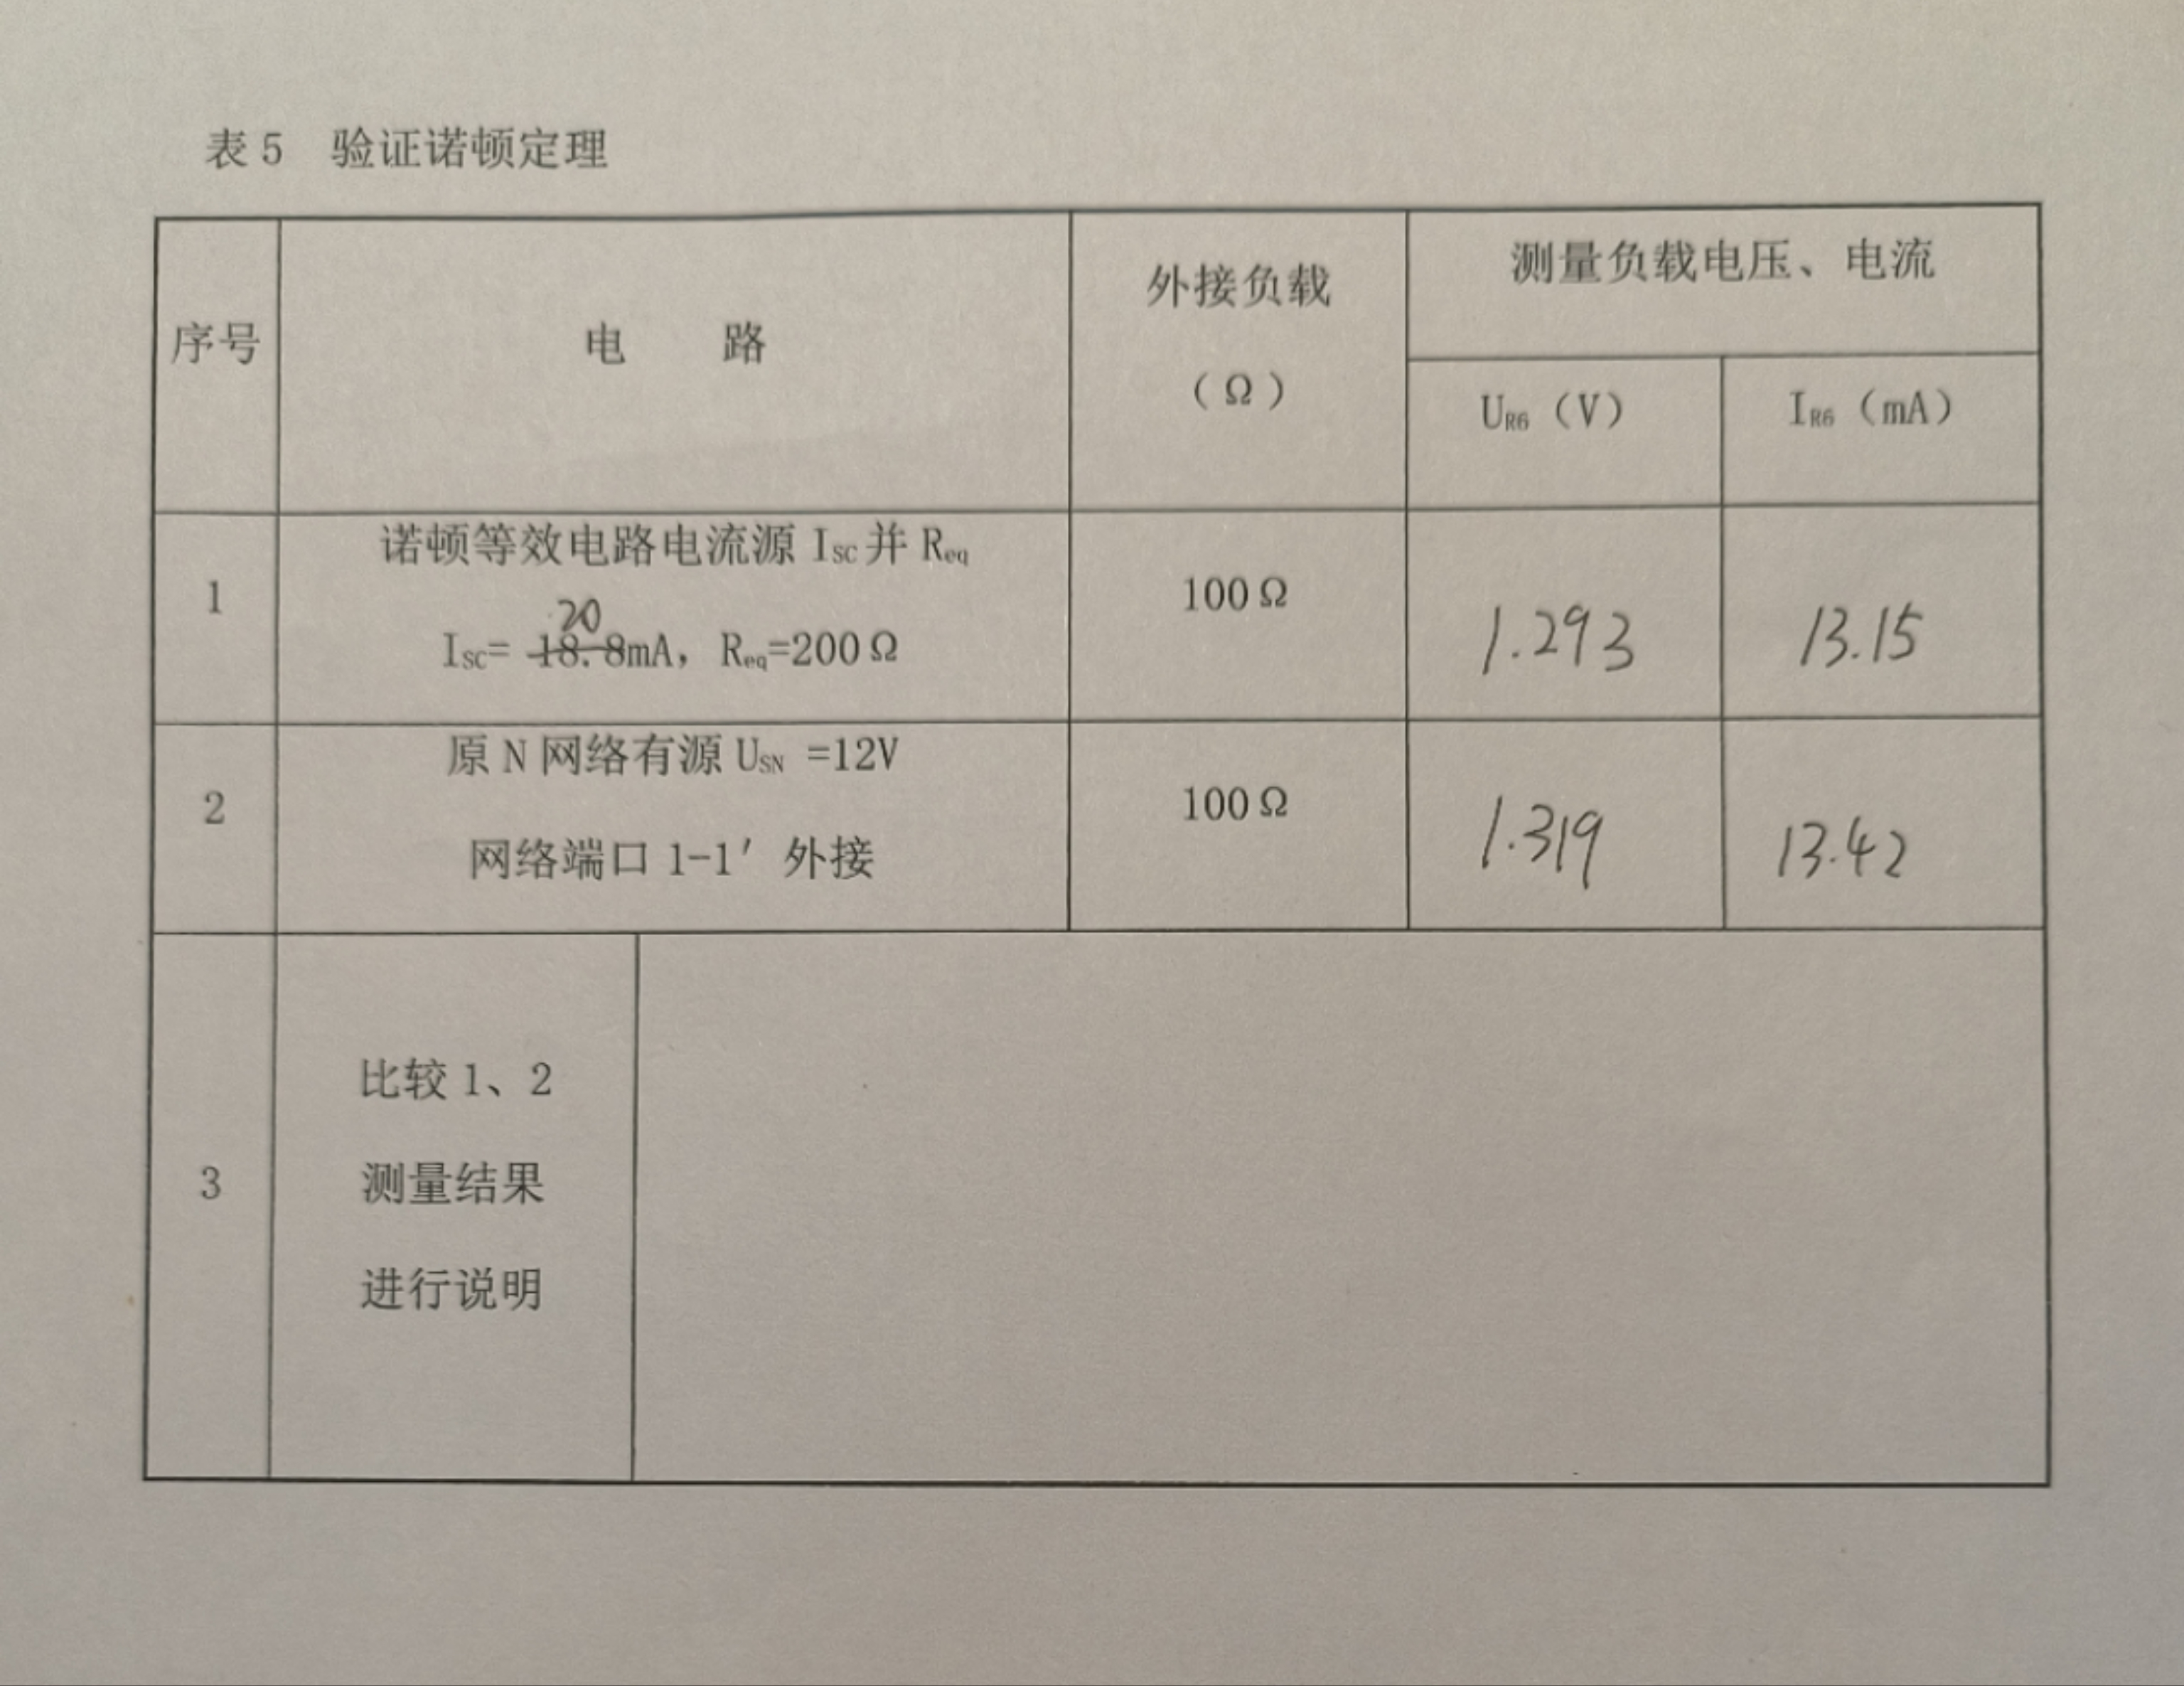 表 5　验证诺顿定理
序号
电　　路
外接负载
（Ω）
测量负载电压、电流
UR6（V）
IR6（mA）
1
诺顿等效电路电流源 ISC 并 Req
20
ISC= 18.8mA，Req=200Ω
100Ω
1.293
13.15
2
原 N 网络有源 USN =12V
网络端口 1-1′ 外接
100Ω
1.319
13.42
3
比较 1、2
测量结果
进行说明